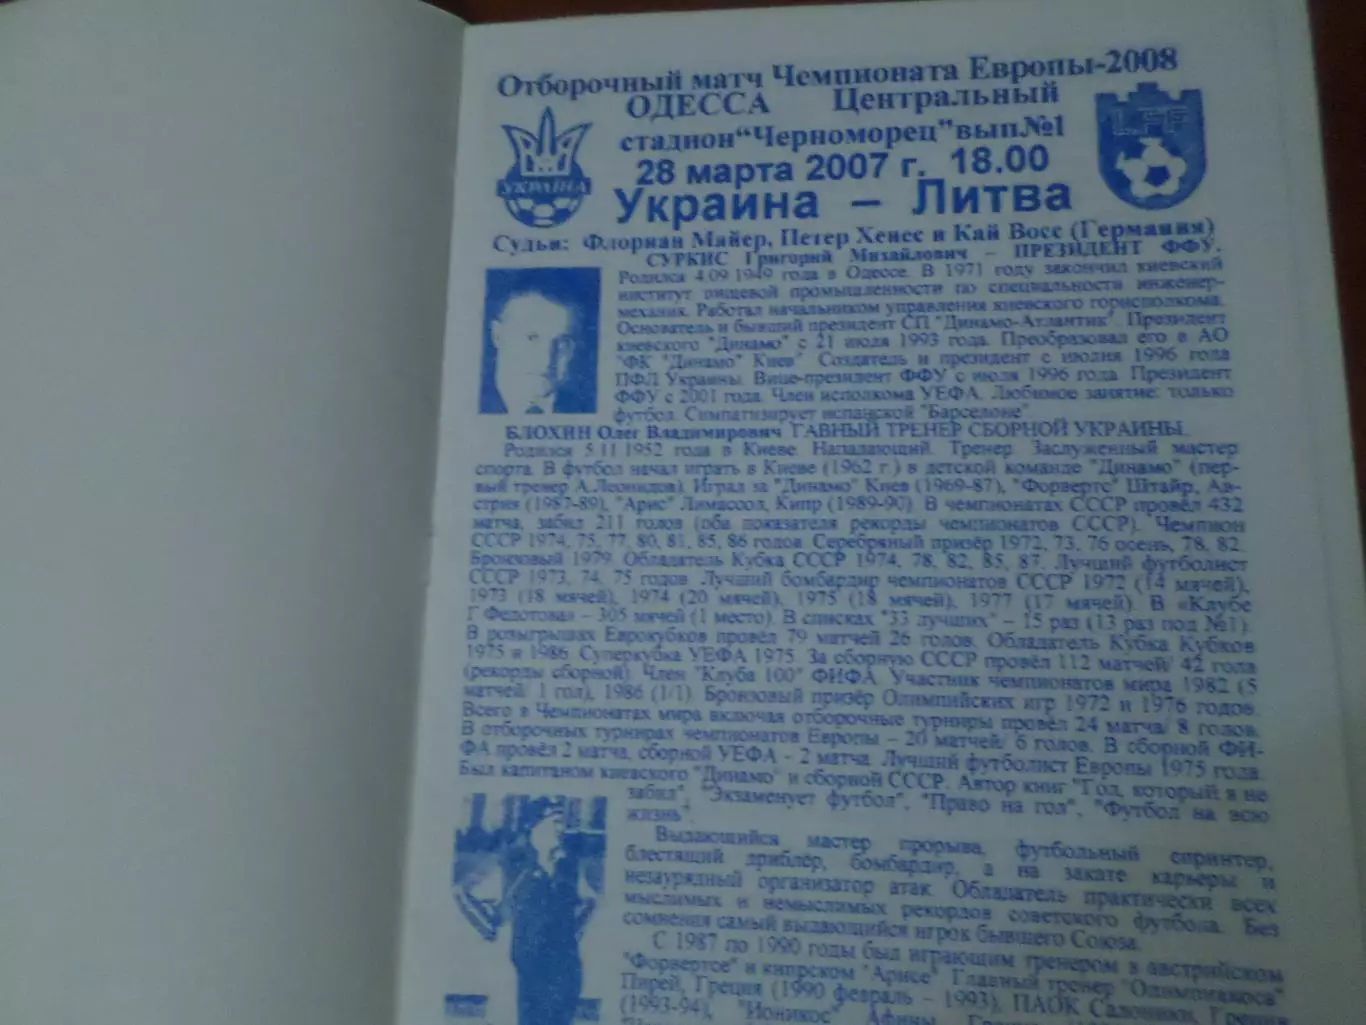 Отборочный матч Чемпионата Европы-2008
ОДЕССА Центральный
стадион "Черноморец" вып.№1
28 марта 2007 г. 18.00
УКРАЇНА
Украина – Литва
Судьи: Флориан Майер, Петер Хенес и Кай Восс (Германия)
СУРКИС Григорий Михайлович – ПРЕЗИДЕНТ ФФУ.
Родился 4.09.1949 года в Одессе. В 1971 году закончил киевский
институт пищевой промышленности по специальности инженер-
механик. Работал начальником управления киевского горисполкома.
Основатель и бывший президент СП "Динамо-Атлантик". Президент
киевского "Динамо" с 21 июля 1993 года. Преобразовал его в АО
"ФК "Динамо" Киев". Создатель и президент с июля 1996 года
ПФЛ Украины. Вице-президент ФФУ с июля 1996 года. Президент
ФФУ с 2001 года. Член исполкома УЕФА. Любимое занятие: только
футбол. Симпатизирует испанской "Барселоне"
БЛОХИН Олег Владимирович ГАВНЫЙ ТРЕНЕР СБОРНОЙ УКРАИНЫ.
Родился 5.11.1952 года в Киеве. Нападающий. Тренер. Заслуженный мастер
спорта. В футбол начал играть в Киеве (1962 г.) в детской команде "Динамо" (пер-
вый тренер А.Леонидов). Играл за "Динамо" Киев (1969-87), "Форвертс" Штайр, Ав-
стрия (1987-89), "Арис" Лимассол, Кипр (1989-90). В чемпионатах СССР провёл 432
матча, забил 211 голов (оба показателя рекорды чемпионатов СССР). Чемпион
СССР 1974, 75, 77, 80, 81, 85, 86 годов. Серебряный призёр 1972, 73, 76 осень, 78, 82.
Бронзовый 1979. Обладатель Кубка СССР 1974, 78, 82, 85, 87. Лучший футболист
СССР 1973, 74, 75 годов. Лучший бомбардир чемпионатов СССР 1972 (14 мячей),
1973 (18 мячей), 1974 (20 мячей), 1975 (18 мячей), 1977 (17 мячей). В «Клубе
Г.Федотова» - 305 мячей (1 место). В списках "33 лучших" – 15 раз (13 раз под №1).
В розыгрышах Еврокубков провёл 79 матчей 26 голов. Обладатель Кубка Кубков
1975 и 1986. Суперкубка УЕФА 1975. За сборную СССР провёл 112 матчей/ 42 гола
(рекорды сборной). Член "Клуба 100" ФИФА. Участник чемпионатов мира 1982 (5
матчей/ 1 гол), 1986 (1/1). Бронзовый призёр Олимпийских игр 1972 и 1976 годов.
Всего в Чемпионатах мира включая отборочные турниры провёл 24 матча/ 8 голов.
В отборочных турнирах чемпионатов Европы – 20 матчей/ 6 голов. В сборной ФИ-
ФА провёл 2 матча, сборной УЕФА - 2 матча. Лучший футболист Европы 1975 года.
Был капитаном киевского "Динамо" и сборной СССР. Автор книг "Гол, который я не
забил", "Экзаменует футбол", "Право на гол", "Футбол на всю
жизнь".
Выдающийся мастер прорыва, футбольный спринтер,
блестящий дриблёр, бомбардир, а на закате карьеры и
незаурядный организатор атак. Обладатель практически всех
мыслимых и немыслимых рекордов советского футбола. Без
сомнения самый выдающийся игрок бывшего Союза.
С 1987 по 1990 годы был играющим тренером в австрийском
"Форвертсе" и кипрском "Арисе". Главный тренер "Олимпиакоса"
Пирей, Греция (1990 февраль – 1993), ПАОК Салоники, Греция
(1993-94), "Ионикос" Афины,